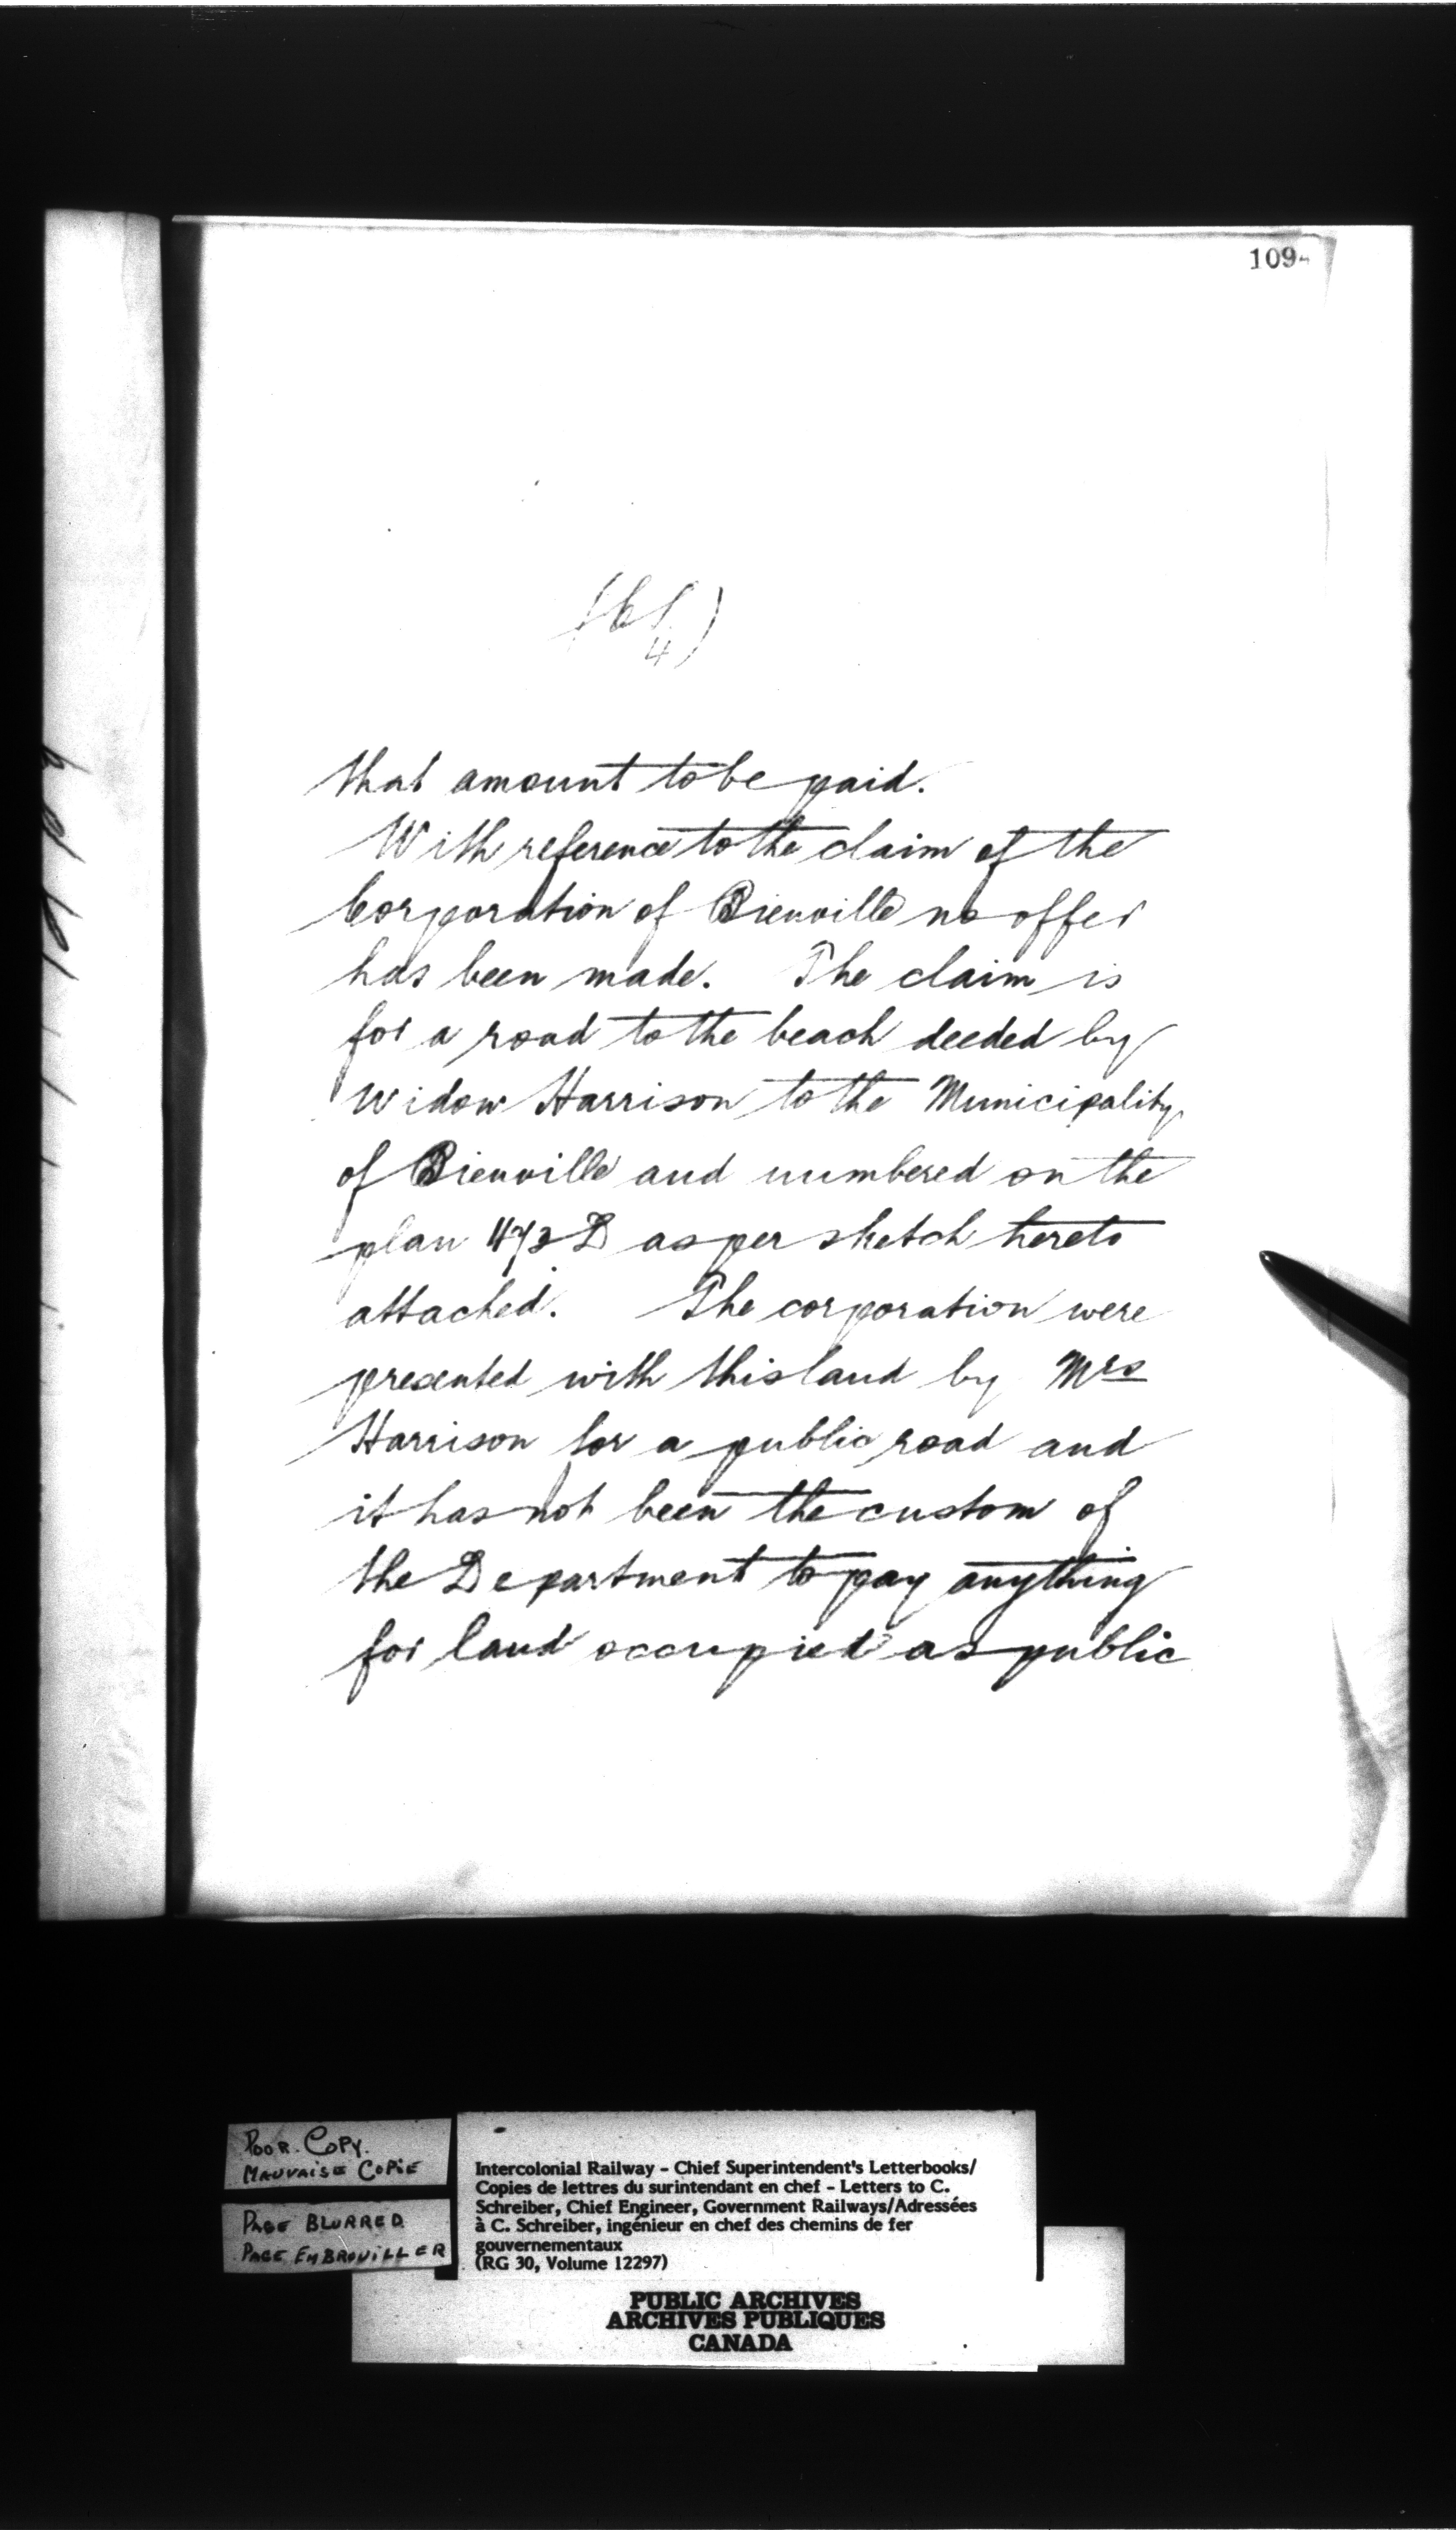 109
that amount to be paid.
With reference to the claim of the
Corporation of Bienville no offer
has been made. The claim is
for a road to the beach deeded by
Widow Harrison to the Municipality
of Bienville and numbered on the
plan 473 D as per sketch hereto
attached. The corporation were
presented with this land by Mrs
Harrison for a public road and
it has not been the custom of
the Department to pay anything
for land occupied as public
POOR COPY.
MAUVAISE COPIE
PAGE BLURRED
PAGE EMBROUILLER
Intercolonial Railway - Chief Superintendent's Letterbooks/
Copies de lettres du surintendant en chef - Letters to C.
Schreiber, Chief Engineer, Government Railways/Adressées
à C. Schreiber, ingénieur en chef des chemins de fer
gouvernementaux
(RG 30, Volume 12297)
PUBLIC ARCHIVES
ARCHIVES PUBLIQUES
CANADA